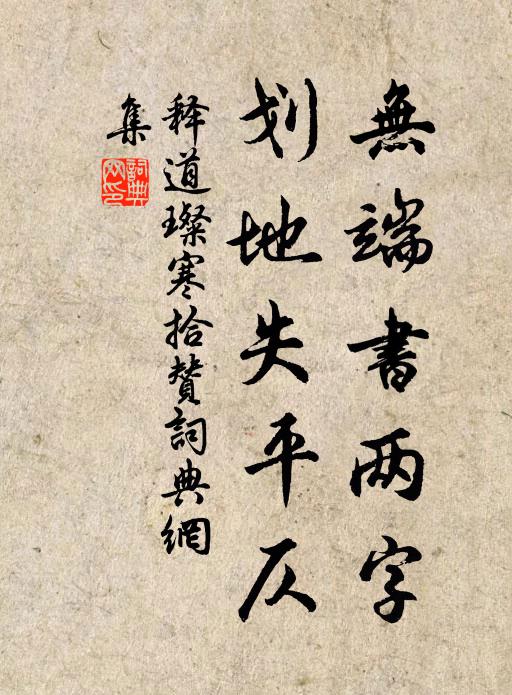 無端書两字
划地失平仄
释道璨寒拾赞詞典網
集
詞典
网印